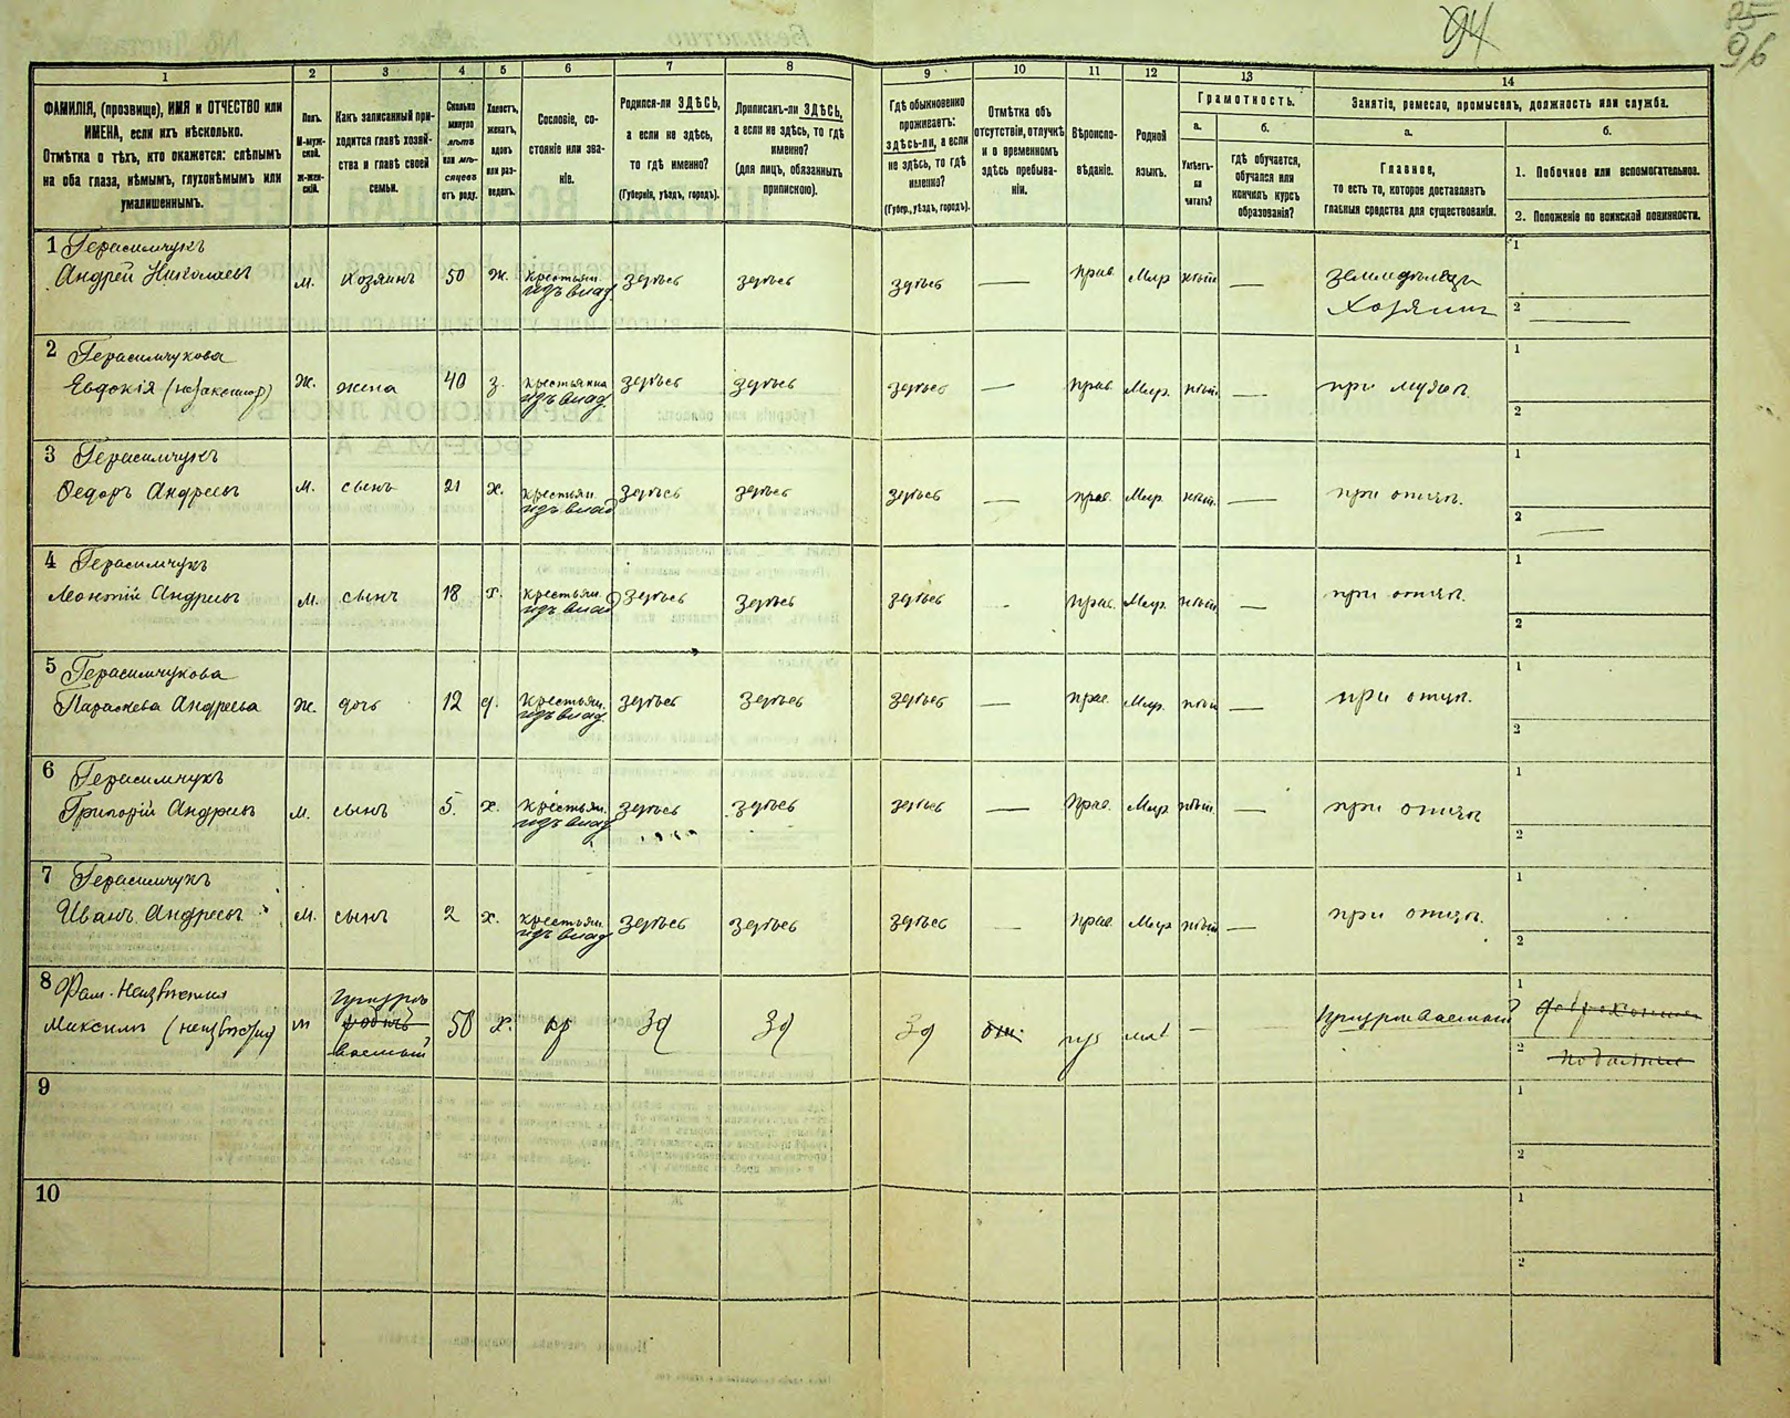 94
85
96
1 2 3 4 5 6 7 8 9 10 11 12 13 14
ФАМИЛІЯ, (прозвище), ИМЯ и ОТЧЕСТВО или
ИМЕНА, если ихъ нѣсколько.
Отмѣтка о тѣхъ, кто окажется: слѣпымъ
на оба глаза, нѣмымъ, глухонѣмымъ или
умалишеннымъ.
Полъ.
М-муж-
ской.
ж-жен-
скій.
Какъ записанный при-
ходится главѣ хозяй-
ства и главѣ своей
семьи.
Сколько
минуло
лѣтъ
или мѣ-
сяцевъ
отъ роду.
Холостъ,
женатъ,
вдовъ
или раз-
веденъ.
Сословіе, со-
стояніе или зва-
ніе.
Родился-ли ЗДѢСЬ,
а если не здѣсь,
то гдѣ именно?
(Губернія, уѣздъ, городъ).
Приписанъ-ли ЗДѢСЬ,
а если не здѣсь, то гдѣ
именно?
(для лицъ, обязанныхъ
припискою).
Гдѣ обыкновенно
проживаетъ:
здѣсь-ли, а если
не здѣсь, то гдѣ
именно?
(Губер., уѣздъ, городъ).
Отмѣтка объ
отсутствіи, отлучкѣ
и о временномъ
здѣсь пребыва-
ніи.
Вѣроиспо-
вѣданіе.
Родной
языкъ.
Грамотность.
а.
Умѣетъ-
ли
читать?
б.
Гдѣ обучается,
обучался или
кончилъ курсъ
образованія?
Занятіе, ремесло, промыселъ, должность или служба.
а.
Главное,
то есть то, которое доставляетъ
главныя средства для существованія.
б.
1. Побочное или вспомогательное.
2. Положеніе по воинской повинности.
1 Герасимчукъ
Андрей Николаевъ м. хозяинъ 50 ж. крестьян. изъ влад. здѣсь здѣсь здѣсь — прав. Мар. нѣтъ — земледѣлецъ
хозяинъ
1
2
2 Герасимчукова
Евдокія ж. жена 40 з. крестьянка изъ влад. здѣсь здѣсь здѣсь — прав. Мар. нѣтъ — при мужѣ
1
2
3 Герасимчукъ
Ѳедоръ Андреевъ м. сынъ 21 х. крестьян. изъ влад. здѣсь здѣсь здѣсь — прав. Мар. нѣтъ — при отцѣ.
1
2
4 Герасимчукъ
Леонтій Андреевъ м. сынъ 18 х. крестьян. изъ влад. здѣсь здѣсь здѣсь прав. Мар. нѣтъ — при отцѣ.
1
2
5 Герасимчукова
Параскева Андреева ж. дочь 12 д. крестьян. изъ влад. здѣсь здѣсь здѣсь — прав. Мар. нѣтъ — при отцѣ.
1
2
6 Герасимчукъ
Григорій Андреевъ м. сынъ 5. х. крестьян. изъ влад. здѣсь здѣсь здѣсь — прав. Мар. нѣтъ — при отцѣ
1
2
7 Герасимчукъ
Иванъ Андреевъ м. сынъ 2 х. крестьян. изъ влад. здѣсь здѣсь здѣсь — прав. Мар. нѣтъ — при отцѣ.
1
2
8 Фам. Неизвѣстна
Максимъ (неизвѣстно) м 50 х. кр зд зд зд — —
1
2
9
1
2
10
1
2